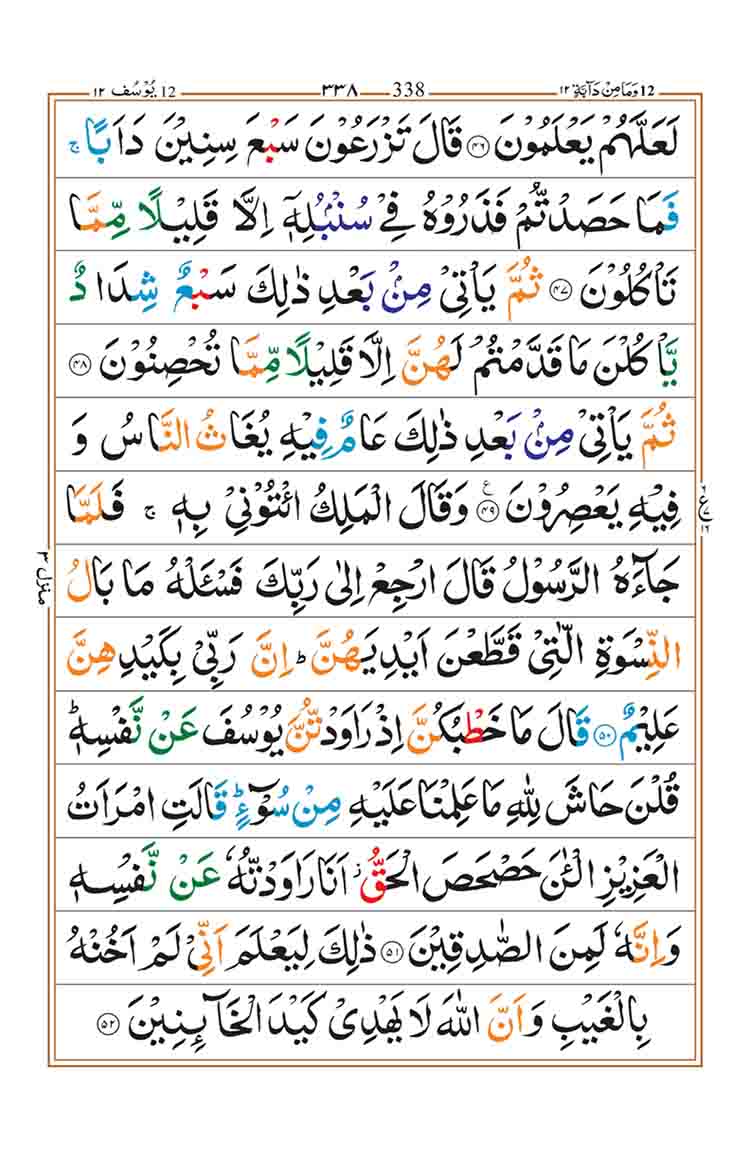 12 يُوْسُف ١٢ ٣٣٨ 338 12 وَمَا مِنْ دَآبَّةٍ ١٢
لَعَلَّهُمْ يَعْلَمُوْنَ ﴿٤٦﴾ قَالَ تَزْرَعُوْنَ سَبْعَ سِنِيْنَ دَاَبًا ۚ
فَمَا حَصَدْتُّمْ فَذَرُوْهُ فِيْ سُنْۢبُلِهٖٓ اِلَّا قَلِيْلًا مِّمَّا
تَاْكُلُوْنَ ﴿٤٧﴾ ثُمَّ يَاْتِيْ مِنْۢ بَعْدِ ذٰلِكَ سَبْعٌ شِدَادٌ
يَّاْكُلْنَ مَا قَدَّمْتُمْ لَهُنَّ اِلَّا قَلِيْلًا مِّمَّا تُحْصِنُوْنَ ﴿٤٨﴾
ثُمَّ يَاْتِيْ مِنْۢ بَعْدِ ذٰلِكَ عَامٌ فِيْهِ يُغَاثُ النَّاسُ وَ
فِيْهِ يَعْصِرُوْنَ ﴿٤٩﴾ ع وَقَالَ الْمَلِكُ ائْتُوْنِيْ بِهٖ ۚ فَلَمَّا
جَآءَهُ الرَّسُوْلُ قَالَ ارْجِعْ اِلٰى رَبِّكَ فَسْـَٔلْهُ مَا بَالُ
النِّسْوَةِ الّٰتِيْ قَطَّعْنَ اَيْدِيَهُنَّ ؕ اِنَّ رَبِّيْ بِكَيْدِهِنَّ
عَلِيْمٌ ﴿٥٠﴾ قَالَ مَا خَطْبُكُنَّ اِذْ رَاوَدْتُّنَّ يُوْسُفَ عَنْ نَّفْسِهٖ ؕ
قُلْنَ حَاشَ لِلّٰهِ مَا عَلِمْنَا عَلَيْهِ مِنْ سُوْٓءٍ ؕ قَالَتِ امْرَاَتُ
الْعَزِيْزِ الْـٰٔنَ حَصْحَصَ الْحَقُّ ؗ اَنَا رَاوَدْتُّهٗ عَنْ نَّفْسِهٖ
وَاِنَّهٗ لَمِنَ الصّٰدِقِيْنَ ﴿٥١﴾ ذٰلِكَ لِيَعْلَمَ اَنِّيْ لَمْ اَخُنْهُ
بِالْغَيْبِ وَاَنَّ اللّٰهَ لَا يَهْدِيْ كَيْدَ الْخَآئِنِيْنَ ﴿٥٢﴾
منزل ٣